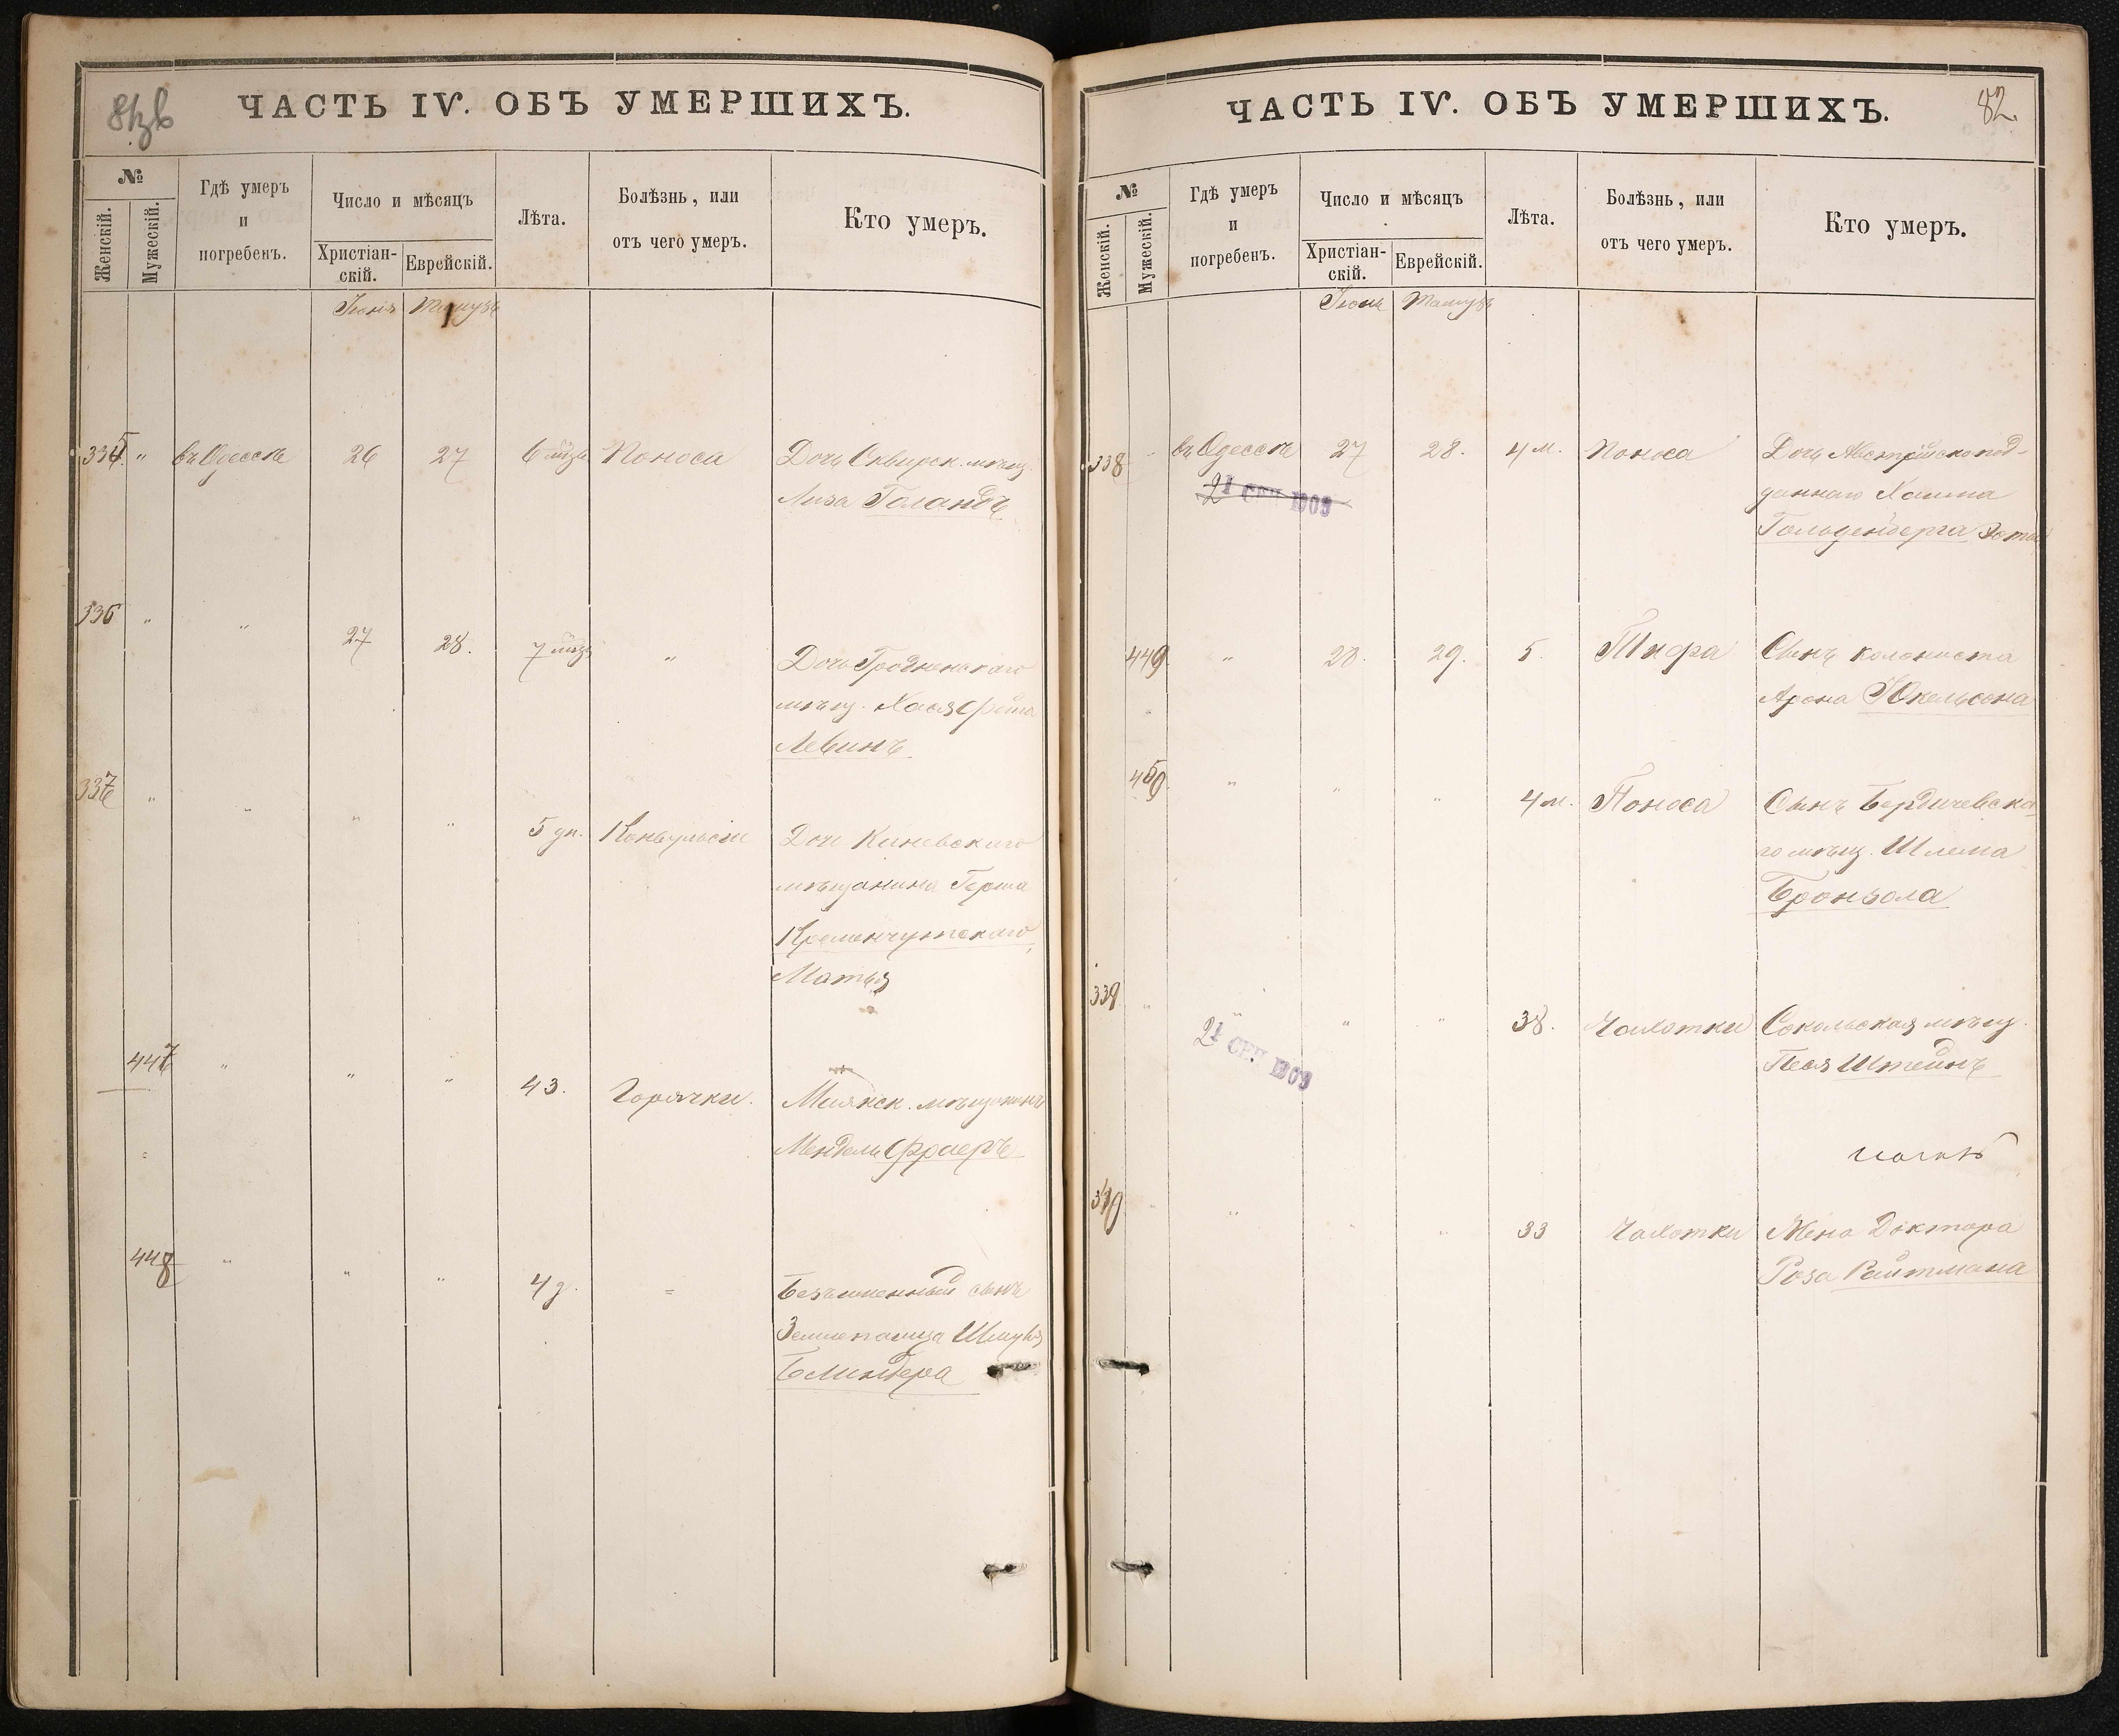 ЧАСТЬ IV. ОБЪ УМЕРШИХЪ.
№
Женскій.
Мужескій.
Гдѣ умеръ
и
погребенъ.
Число и мѣсяцъ
Христіан-
скій.
Еврейскій.
Лѣта.
Болѣзнь, или
отъ чего умеръ.
Кто умеръ.
Іюня Тамузъ
335 " въ Одессѣ 26 27 6 мѣс Поноса Дочь Сквирск. мѣщ.
Лиза Голандъ
336 " " 27 28. 7 мѣс " Дочь Гродненскаго
мѣщ. Хася
Левинъ
337 " " " " 5 дн. Конвульсіи Дочь Кіневскаго
мѣщанина Герша
Кременчугскаго
Матья
447 " " " 43. Горячки. мѣщанинъ
Мендель Фраеръ
448 " " " 4 д. = Безъименный сынъ
Шмуля
Белиндера
ЧАСТЬ IV. ОБЪ УМЕРШИХЪ.
82.
№
Женскій.
Мужескій.
Гдѣ умеръ
и
погребенъ.
Число и мѣсяцъ
Христіан-
скій.
Еврейскій.
Лѣта.
Болѣзнь, или
отъ чего умеръ.
Кто умеръ.
Іюня Тамузъ
338 " въ Одессѣ 27 28. 4 м. Поноса Дочь Австрійскопод-
даннаго Хаима
Гольденберга
21 СЕН 1909
449 " 28. 29. 5. Тифа Сынъ колониста
Арона Юкельсона
450 " " " 4 м. Поноса Сынъ Бердичевска-
го мѣщ. Шлема
Бронзола
339 " " " " 38. Чахотки Сокольская мѣщ.
Песя Штейнъ
21 СЕН 1909
340 " " " " 33 Чахотки Жена Доктора
Роза Райтмана